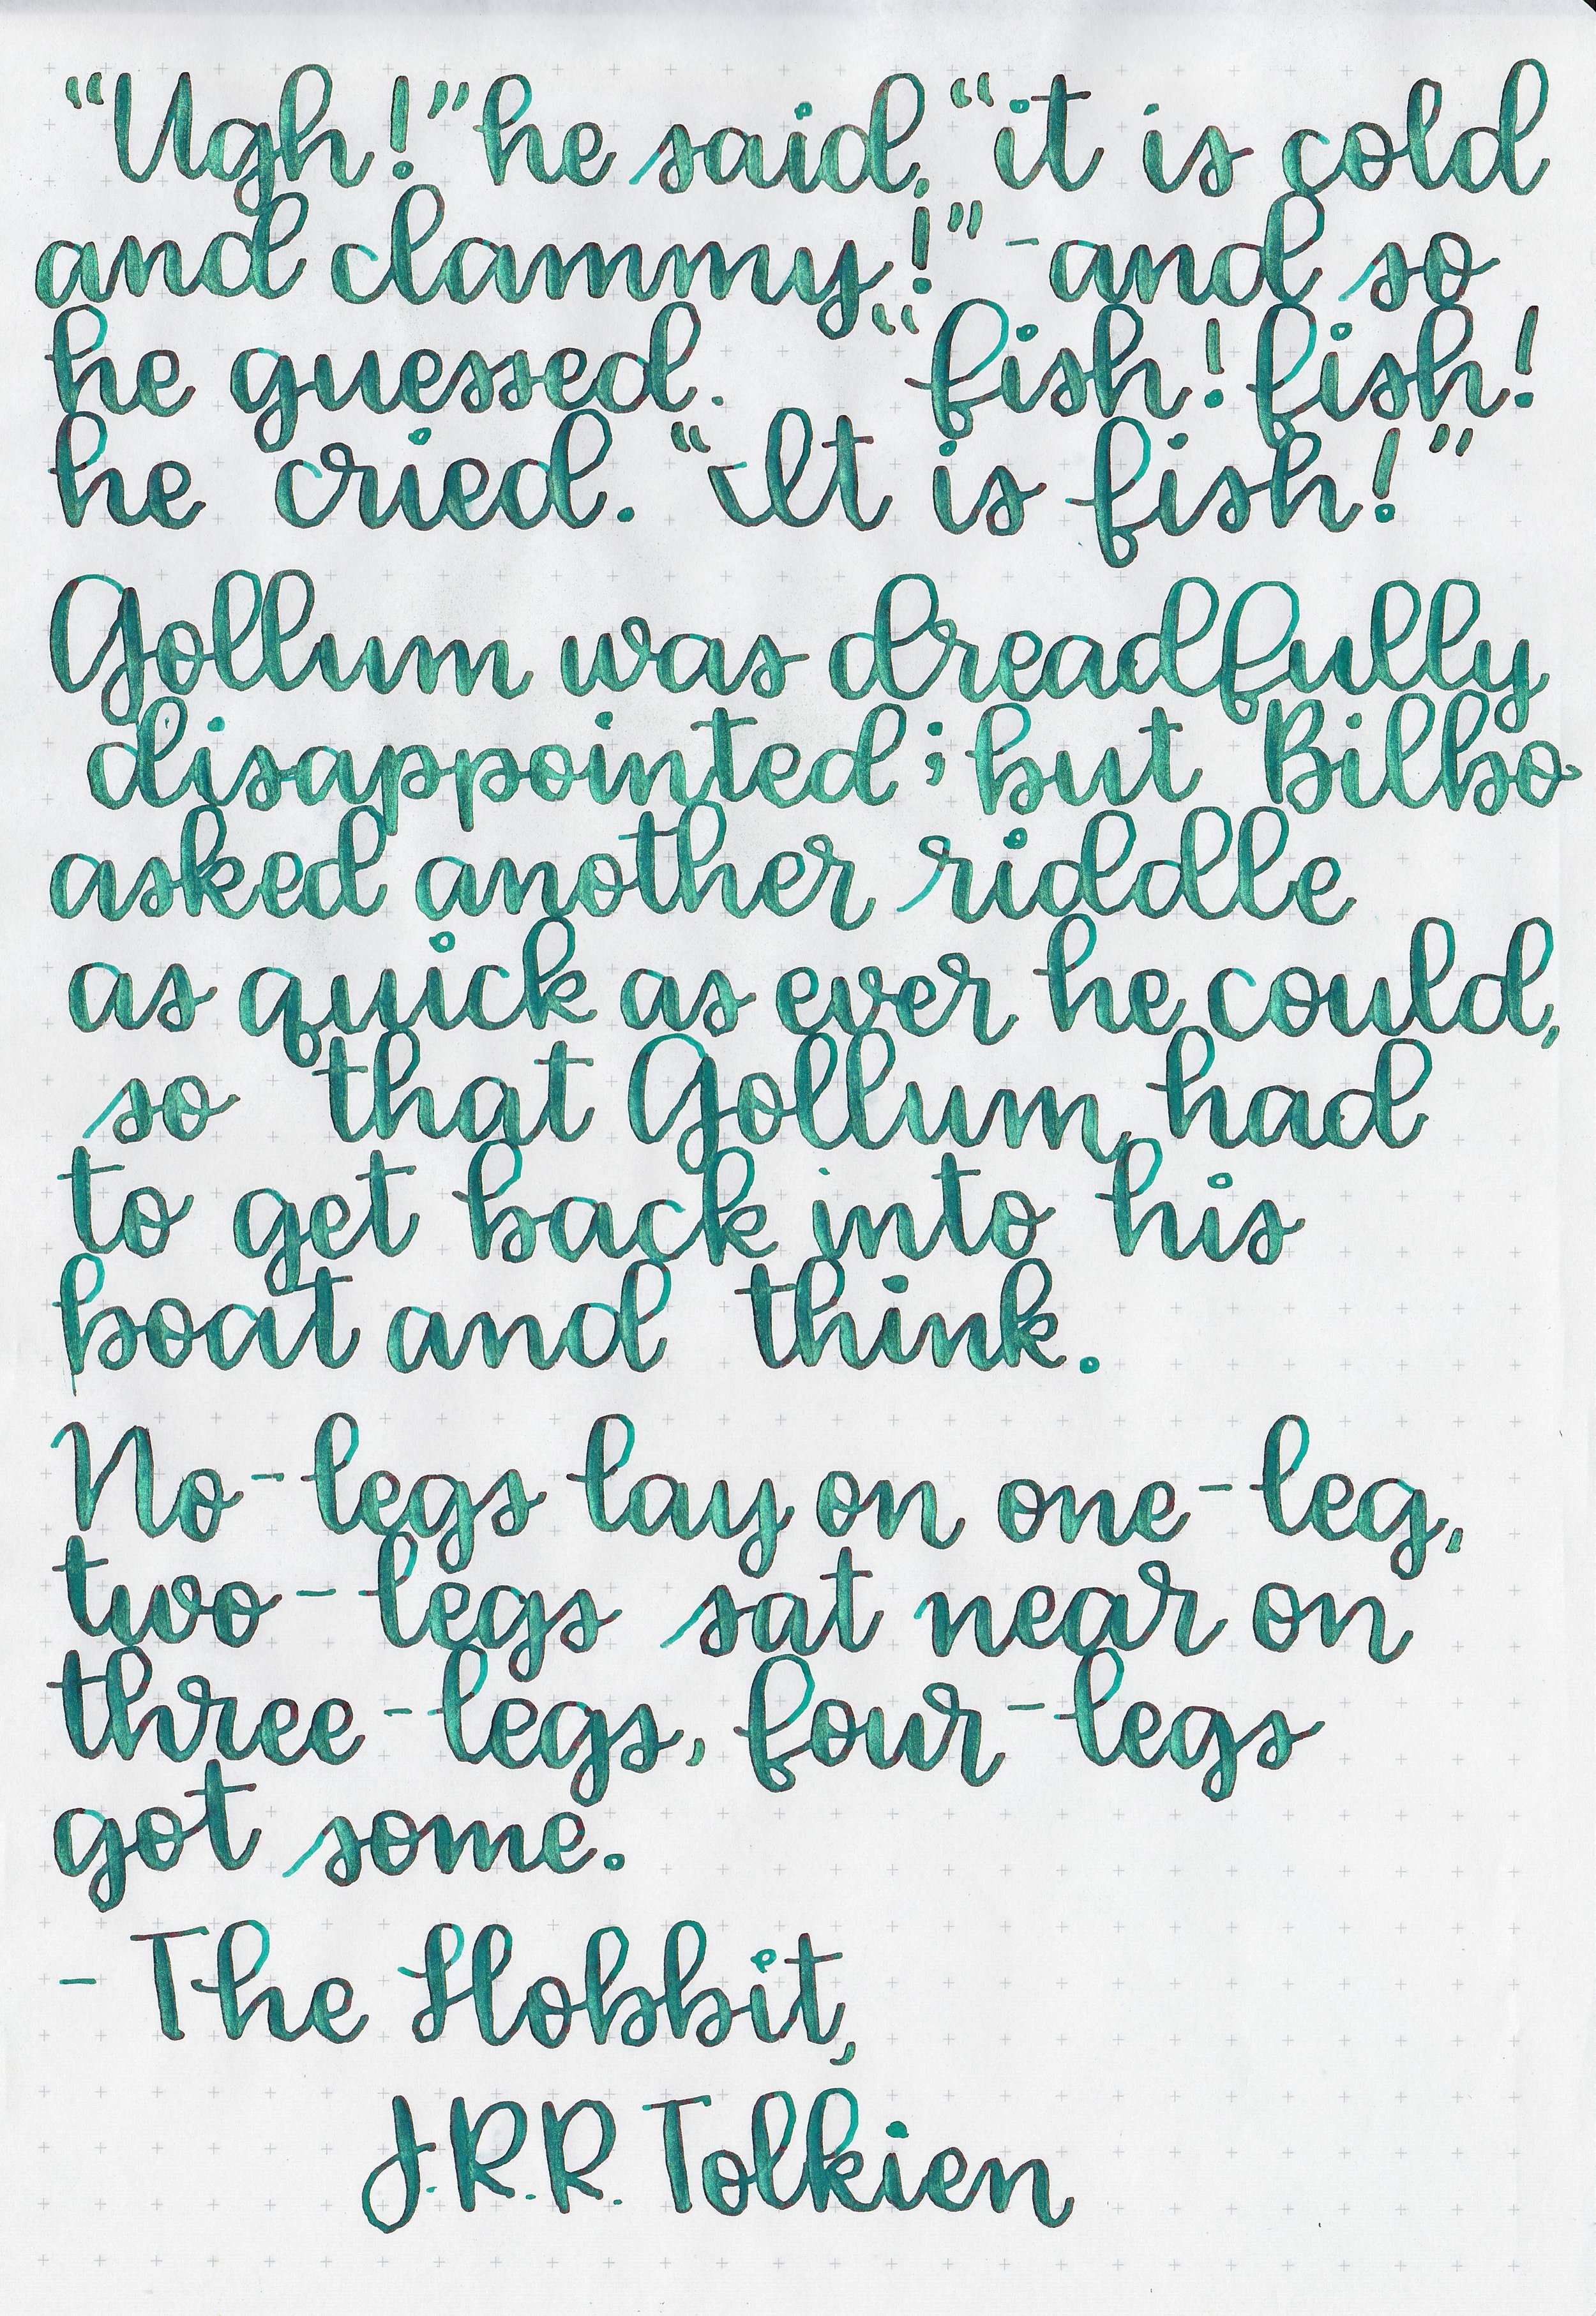 “Ugh!” he said, “it is cold
and clammy!” - and so
he guessed. “fish! fish!
he cried. “It is fish!”
Gollum was dreadfully
disappointed; but Bilbo
asked another riddle
as quick as ever he could,
so that Gollum had
to get back into his
boat and think.
No-legs lay on one-leg,
two-legs sat near on
three-legs, four-legs
got some.
- The Hobbit,
J.R.R. Tolkien